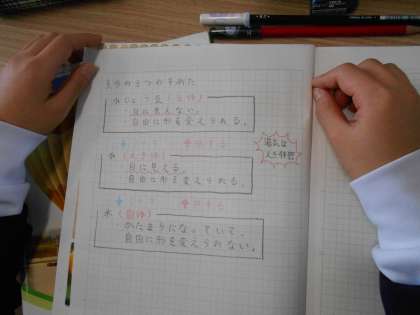 水のうつのすがた
水じょう気(気体)
・目に見えない。
・自由に形を変えられる。
水(えき体)
・目に見える。
・自由に形を変えられる。
湯気は
えき体
氷(固体)
・かたまりになっていて、
自由に形を変えられない。